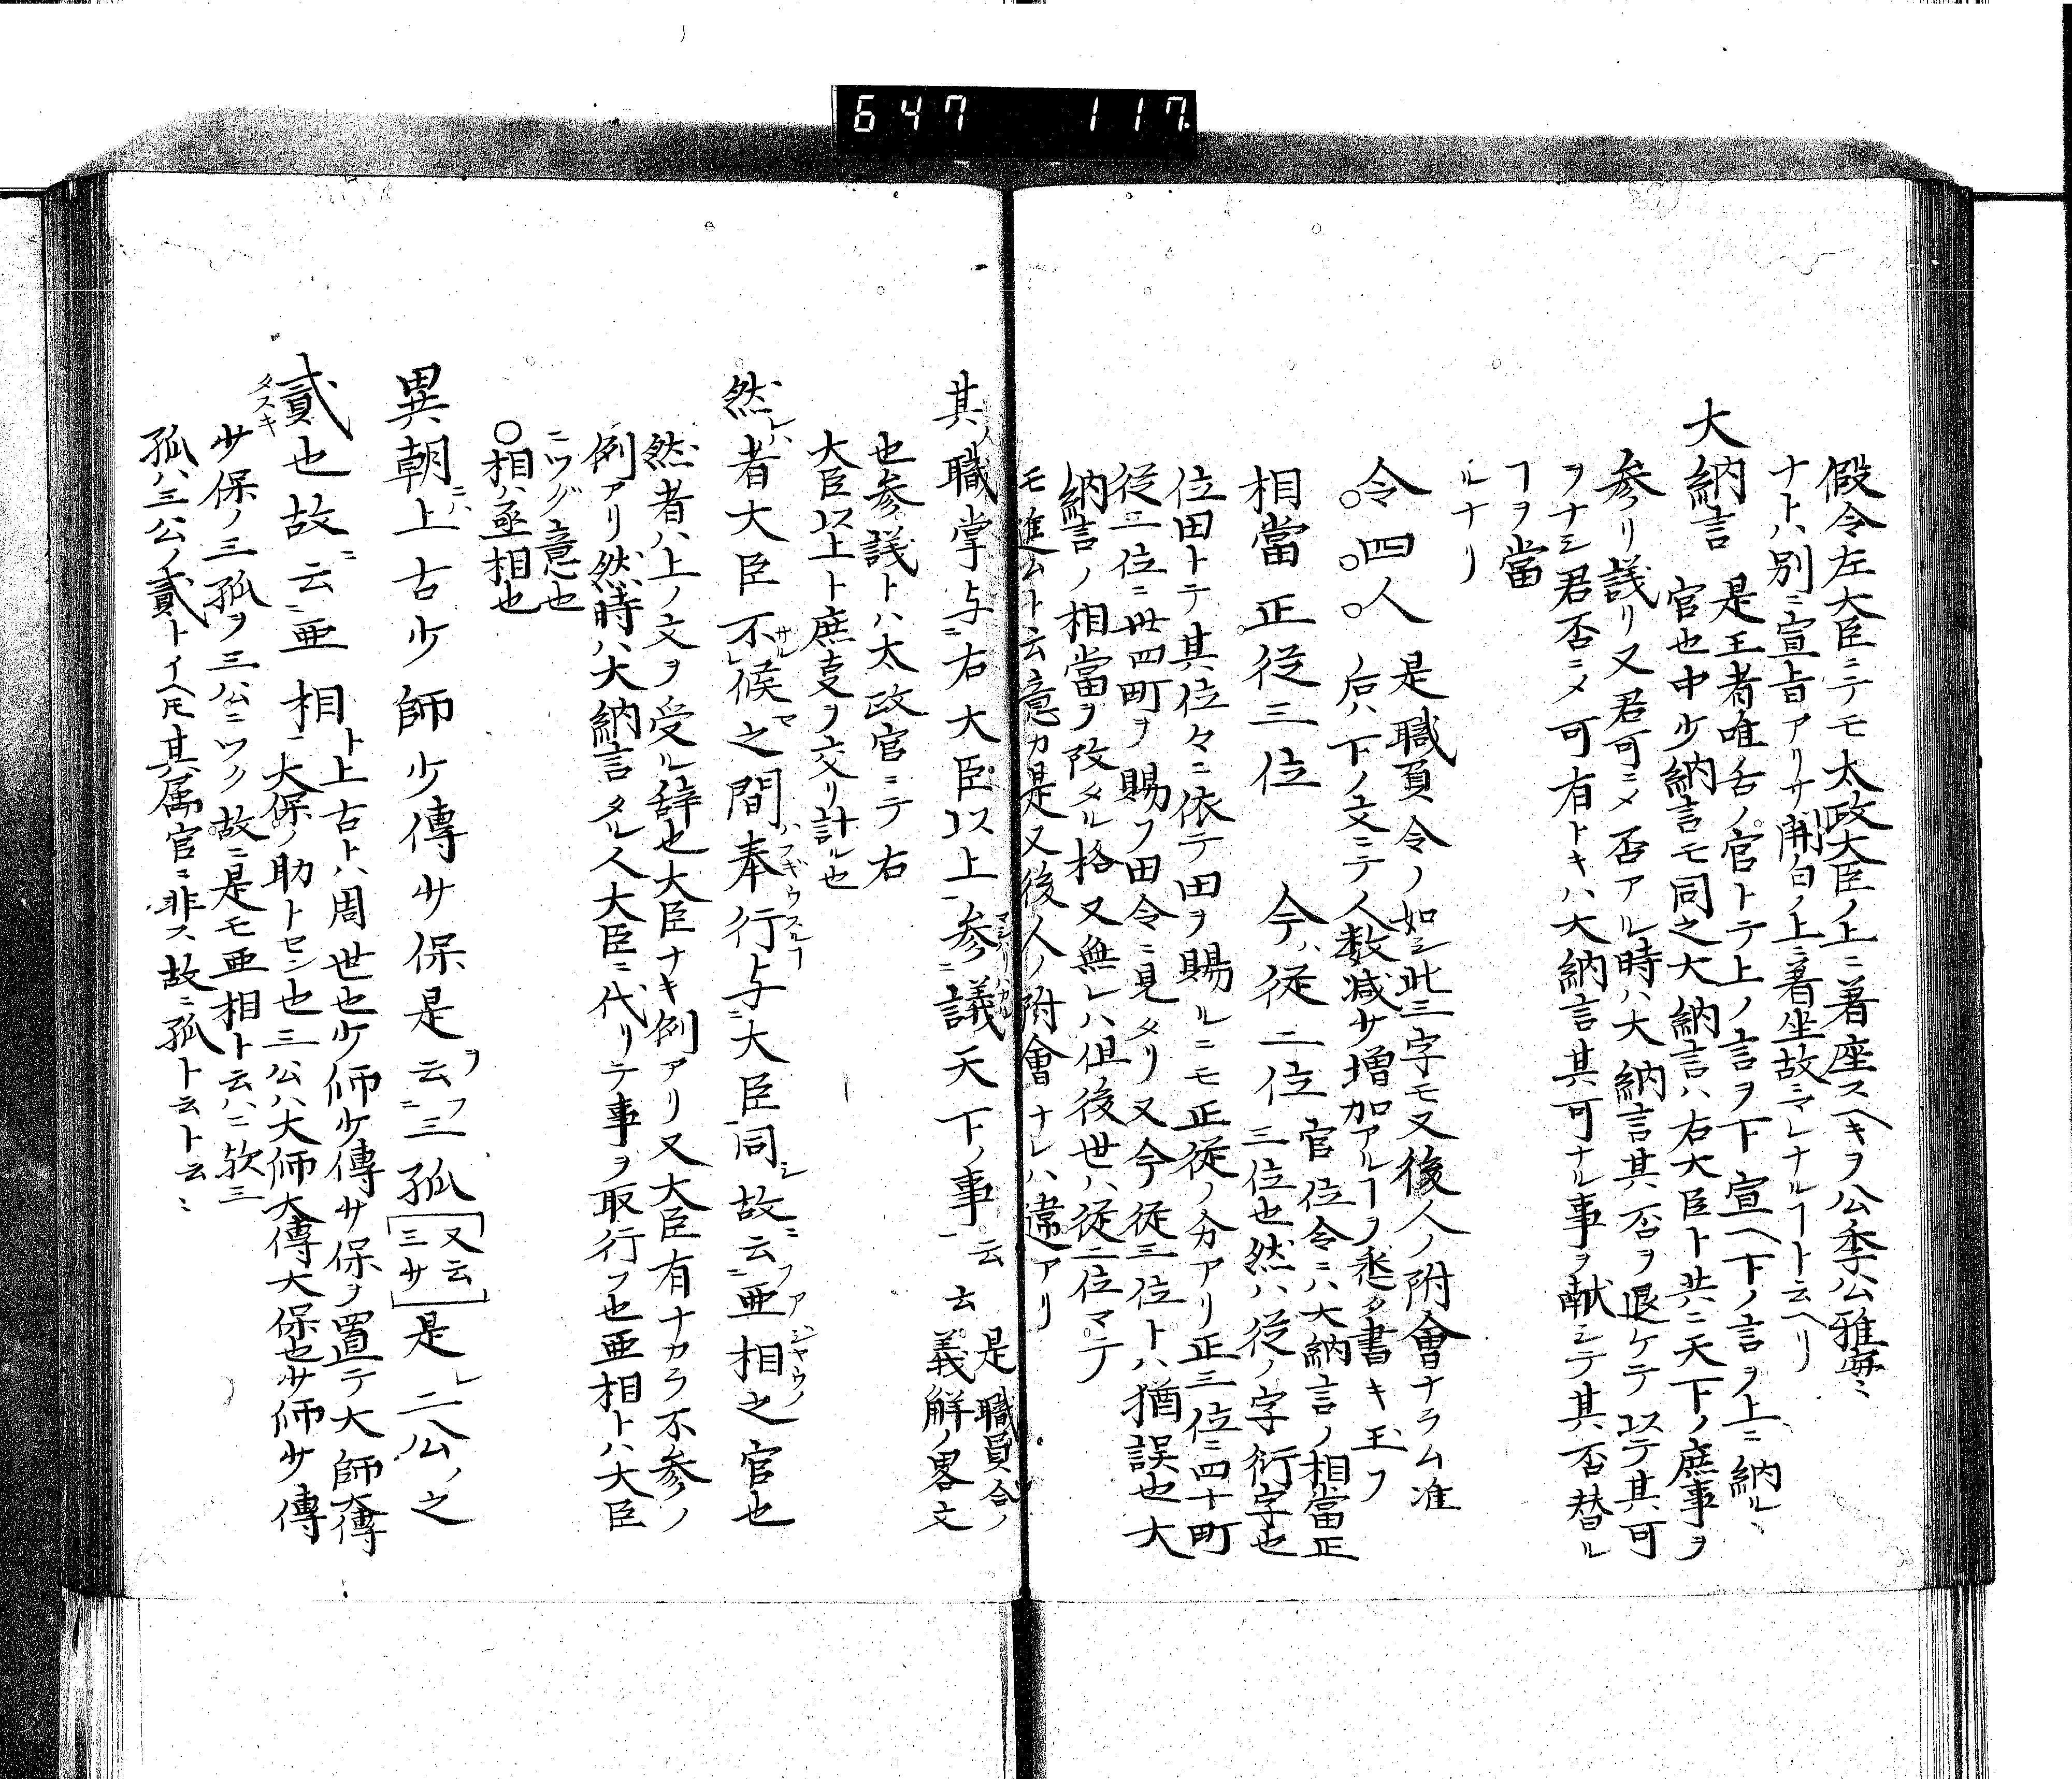 647 117
假令左大臣ニテモ太政大臣ノ上ニ著座スヘキヲ公季公雅
ナトハ別ニ宣旨アリサ開白ノ上ニ著坐故ニマレナルヿト云ヘリ
大納言 是王者唯舌ノ官トテ上ノ言ヲ下宣ヘ下ノ言ヲ上ニ納ル
官也中少納言モ同之大納言ハ右大臣ト共ニ天下ノ庶事ヲ
参リ議リ又君可ニメ否アル時ハ大納言其否ヲ退ケテ以テ其可
ヲナシ君否ニメ可有トキハ大納言其可ナル事ヲ献シテ其否替ル
ヿヲ當
ルナリ
令四人 是職員令ノ如シ此三字モ又後人ノ附會ナラム准
后ハ下ノ文ニテ人数減サ増加アルヿヲ悉ク書キ玉フ
相當正従三位 今ハ従二位 官位令ニハ大納言ノ相當正
三位也然ハ従ノ字衍字也
位田トテ其位々ニ依テ田ヲ賜ルニモ正従ノ分アリ正三位ニ四十町
従三位ニ丗四町ヲ賜フ田令ニ見タリ又今従三位トハ猶誤也大
納言ノ相當ヲ改タル格又無レハ但後世ハ従二位マテ
モ進ムト云意カ是又後人ノ附會ナレハ違アリ
其ノ職掌与ニ右大臣以上一参ニ議天下ノ事一云云 是職員令ノ
義解ノ畧文
也参議トハ太政官ニテ右
大臣以上ト庶支ヲ交リ計ル也
然レハ者大臣不レ候之間奉行与ニ大臣一同シ故ニ云ニ亜相之官也
然者ハ上ノ文ヲ受ル辞也大臣ナキ例アリ又大臣有ナカラ不参ノ
例アリ然時ハ大納言タル人大臣ニ代リテ事ヲ取行フ也亜相トハ大臣
ニツグ意也
○相ハ丞相也
異朝ニハ上古少師少傳少保是ヲ云ニフ三孤[又云三少]是レ二公ノ之
貳也故ニ云ニ亜相一ト 上古トハ周世也少師少傳少保ヲ置テ大師大傳
大保ノ助トセシ也三公ハ大師大傳大保也少師少傳
少保ノ三孤ヲ三公ニツク故ニ是モ亜相ト云ハニ欤三
孤ハ三公ノ貳トイヘ𪜈其属官ニ非ス故ニ孤ト云ト云ミ